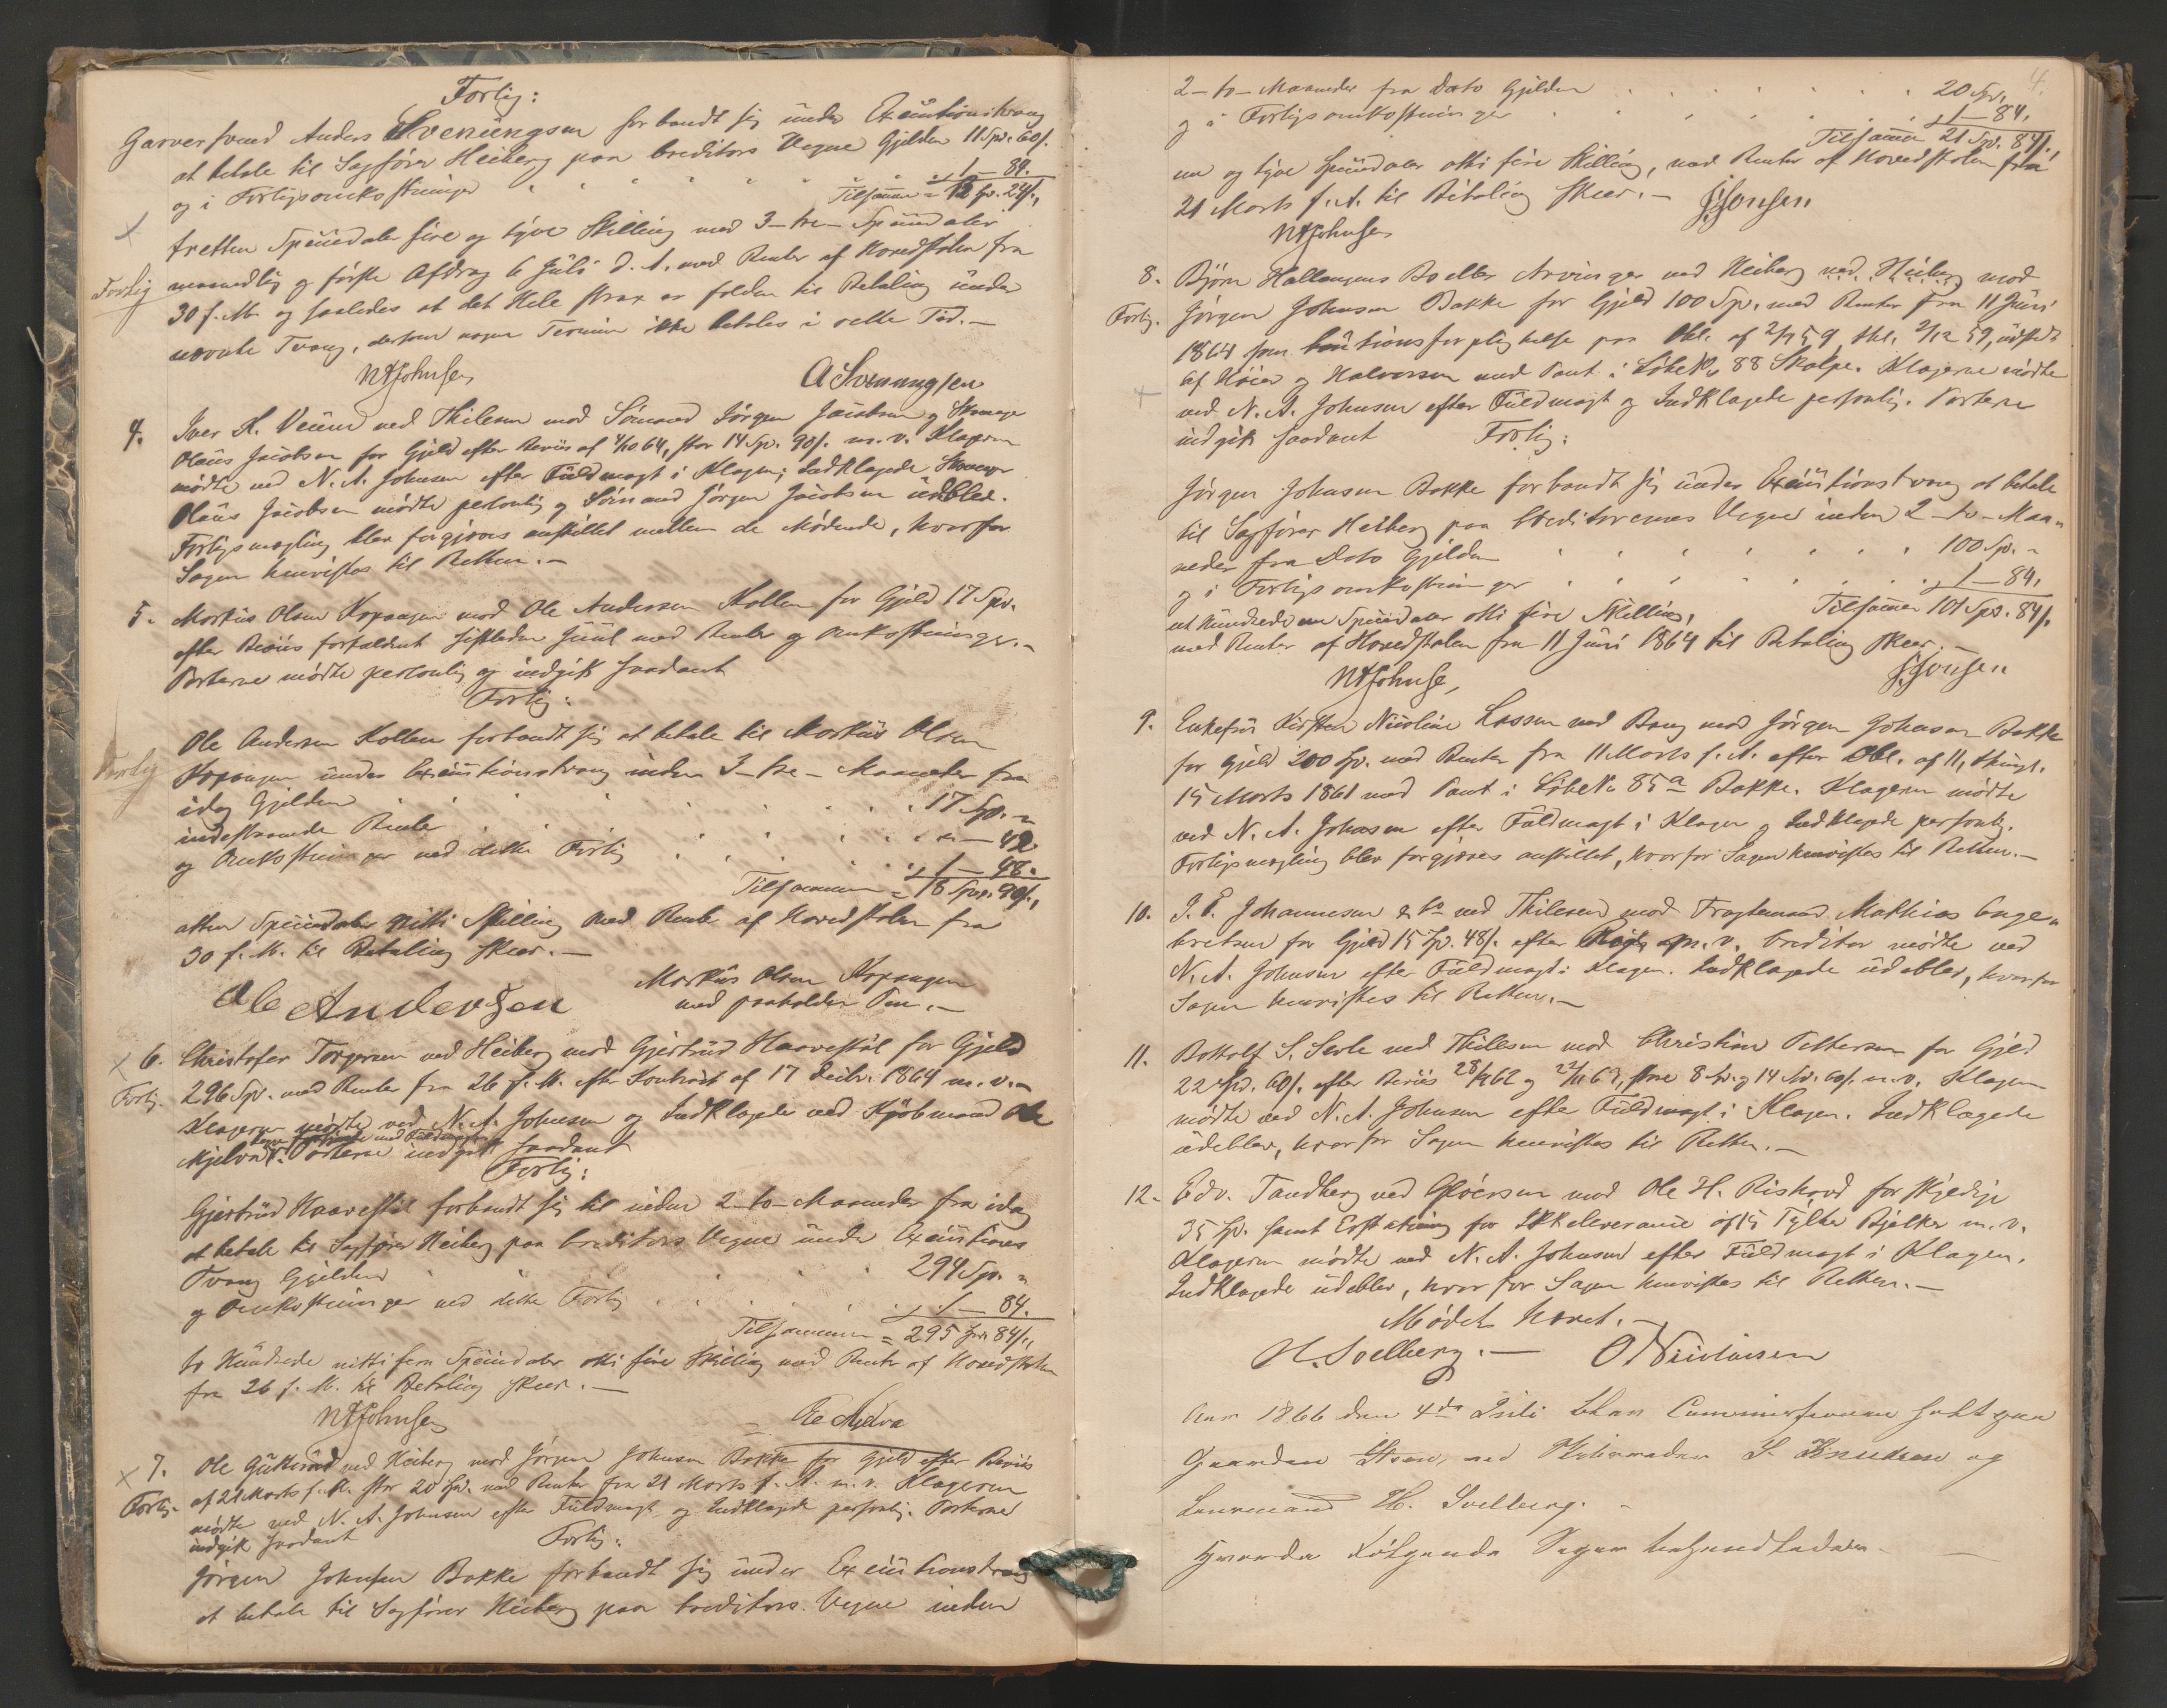 Forlig:
Garversvend Anders Svenungsen forbandt sig under Executionstvang
at betale til Sagfører Heiberg paa Creditors Vegne Gjelden 11 Spd. 60 s.
og i Forligsomkostninger 1 — 84.
Tilsammen = 13 Sp. 24 s.,
tretten Speciedaler fire og tyve Skilling med 3 - tre - Speciedaler
maanedlig og første Afdrag 6 Juli d. A. med Renter af Hovedstolen fra
Forlig
30 f. M. og saaledes at det Hele strax er falden til Betaling under
nævnte Tvang, dersom nogen Termin ikke betales i rette Tid. —
NAJohnsen A Svenungsen
4. Iver H. Veum ved Thilesen mod Sømand Jørgen Jacobsen og
Olaus Jacobsen for Gjeld efter Beviis af 4/10 64, stor 14 Sp. 90 s. m. v. Klageren
mødte ved N. A. Johnsen efter Fuldmagt i Klagen; Indklagede
Olaus Jacobsen mødte personlig og Sømand Jørgen Jacobsen udblev.
Forligsmægling blev forgjæves anstillet mellem de Mødende, hvorfor
Sagen henvistes til Retten. —
5. Markus Olsen Kopangen mod Ole Andersen Kollen for Gjeld 17 Spd.
efter Beviis forfaldent sidstleden Juul med Renter og Omkostninger. —
Parterne mødte personlig og indgik saadant
Forlig:
Ole Andersen Kollen forbandt sig at betale til Markus Olsen
Forlig
Kopangen under Executionstvang inden 3 - tre - Maaneder fra
idag Gjelden 17 Sp. "
indestaaende Renter " — 42
og Omkostninger ved dette Forlig 1 — 48.
Tilsammen = 18 Spd. 90 s.,
atten Speciedaler nitti Skilling med Renter af Hovedstolen fra
30 f. M. til Betaling skeer. —
Ole Andersen Markus Olsen Kopangen
med paaholden Pen. —
6. Christofer Torgersen ved Heiberg mod Gjertrud Haavestøl for Gjeld
Forlig.
296 Sp. med Renter fra 26 f. M. efter Kontract af 17 Decbr. 1864 m. v. —
Klageren mødte ved N. A. Johnsen og Indklagede ved Kjøbmand Ole
med Fuldmagt
Mjelva. Parterne indgik saadant
Forlig:
Gjertrud Haavestøl forbandt sig til inden 2 - to - Maaneder fra idag
at betale til Sagfører Heiberg paa Creditors Vegne under Executions
Tvang Gjelden 294 Sp. "
og Omkostninger ved dette Forlig 1 — 84.
Tilsammen = 295 Spd. 84 s.,
to Hundrede nitti fem Speciedaler otti fire Skilling med Renter af Hovedstolen
fra 26 f. M. til Betaling skeer. —
NAJohnsen Ole Mjelva
7. Ole ved Heiberg mod Jørgen Johnsen Bakke for Gjeld efter Beviis
Forlig.
af 21 Marts f. A. stor 20 Spd. med Renter fra 21 Marts f. A. m. v. Klageren
mødte ved N. A. Johnsen efter Fuldmagt og Indklagede personlig. Parterne
indgik saadant Forlig:
Jørgen Johnsen Bakke forbandt sig under Executionstvang
at betale til Sagfører Heiberg paa Creditors Vegne inden
4.
2 - to - Maaneder fra Dato Gjelden 20 Sp.,
og i Forligsomkostninger 1 — 84.
Tilsammen 21 Spd. 84 s.,
en og tyve Speciedaler otti fire Skilling, med Renter af Hovedstolen fra
21 Marts f. A. til Betaling skeer. — J. Jonsen
NAJohnsen
8. Bjørn Hallangens Bo eller Arvinger ved Heiberg ved Heiberg mod
Forlig.
Jørgen Johnsen Bakke for Gjeld 100 Sp. med Renter fra 11 Juni
1864 som Cautionsforpligtelse paa Obl. af 2/12 59, thl. 2/12 59, udstedt
af Høier og Halvorsen med Pant i Løbe No 88 Skalpe. Klagerne mødte
ved N. A. Johnsen efter Fuldmagt og Indklagede personlig. Parterne
indgik saadant Forlig:
Jørgen Johnsen Bakke forbandt sig under Executionstvang at betale
til Sagfører Heiberg paa Creditorernes Vegne inden 2 - to - Maa-
neder fra Dato Gjelden 100 Sp. "
og i Forligsomkostninger 1 — 84.
Tilsammen 101 Spd. 84 s.
et Hundrede en Speciedaler otti fire Skilling,
med Renter af Hovedstolen fra 11 Juni 1864 til Betaling skeer. —
NAJohnse, J. Jonsen
9. Enkefru Kirsten Nicoline Lassen ved Bang mod Jørgen Johnsen Bakke
for Gjeld 200 Sp. med Renter fra 11 Marts f. A. efter Obl. af 11, thingl.
15 Marts 1861 med Pant i Løbe No 85a Bakke. Klageren mødte
ved N. A. Johnsen efter Fuldmagt i Klagen og Indklagede personlig.
Forligsmægling blev forgjæves anstillet, hvorfor Sagen henvistes til Retten. —
10. J. P. Johannesen & Co ved Thilesen mod Fragtemand Mathias Enge-
bretsen for Gjeld 15 Sp. 48 s. efter m. v. Creditor mødte ved
N. A. Johnsen efter Fuldmagt i Klagen. Indklagede udeblev, hvorfor
Sagen henvistes til Retten. —
11. Bottolf S. ved Thilesen mod Christian Pettersen for Gjeld
22 Spd. 60 s. efter Beviis og store 8 Sp. og 14 Sp. 60 s. m. v. Klageren
mødte ved N. A. Johnsen efter Fuldmagt i Klagen. Indklagede
udeblev, hvorfor Sagen henvistes til Retten. —
12. Edv. Tandberg ved Gløersen mod Ole H. Riskard for skyldige
35 Sp. samt Erstatning for Ikkeleverance af 15 Tylter Bjelker m. v.
Klageren mødte ved N. A. Johnsen efter Fuldmagt i Klagen.
Indklagede udeblev, hvorfor Sagen henvistes til Retten. —
Mødet hævet. —
H. Solberg. — O Nicolaisen
Aar 1866 den 4de Juli blev Commissionen sat paa
Gaarden ved S. Knudsen og
Lensmand H. Solberg. —
Hvorda følgende Sager behandledes. —